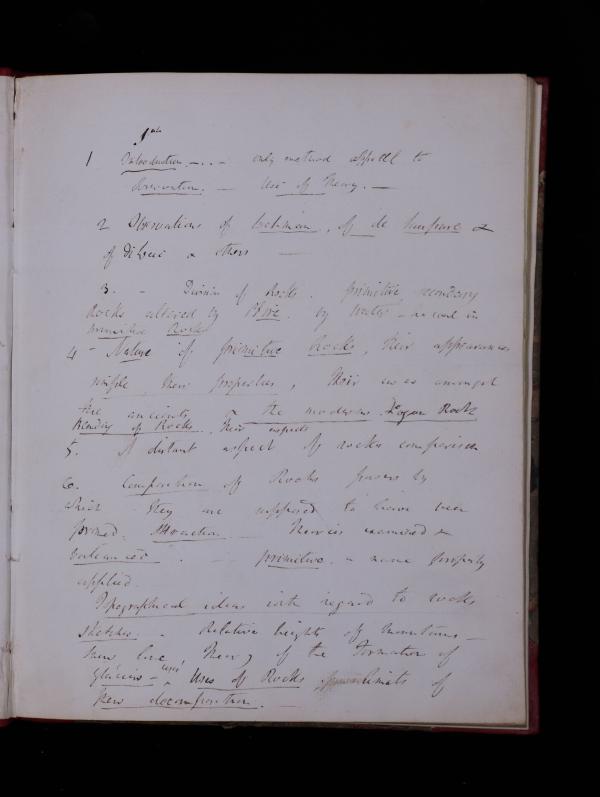 1 Introduction. — . . — only method appeal to
observation. — Use of Theory. —
2 Observations of , of de Saussure &
of De Luc & others —
3. — Division of Rocks. primitive secondary
Rocks altered by Fire. by water — no coal in
primitive Rocks
4 — Nature of primitive Rocks, their appearances
simple, their properties, their uses amongst
the ancients — the moderns. Logan Rock
of Rocks. Their aspects
5. A distant aspect of rocks comparison
6. Composition of Rocks powers by
which they are supposed to have been
formed. Attraction. — Theories examined &
. — primitive. — name properly
applied.
Topographical ideas with regard to rocks
sketches. — Relative heights of Mountains —
snow line, Theory of the Formation of
glaciers — uses, Uses of Rocks limits of
their decomposition. —